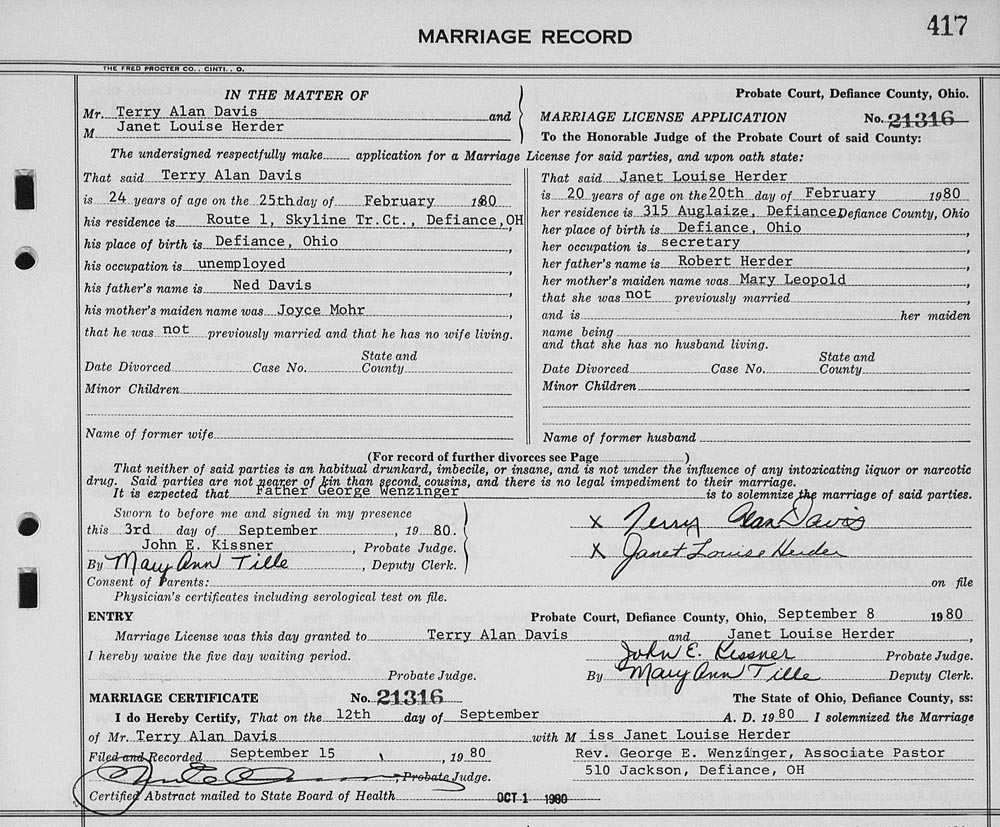 417
MARRIAGE RECORD
THE FRED PROCTER CO., CINTI., O.
IN THE MATTER OF
Mr. Terry Alan Davis and
M Janet Louise Herder
Probate Court, Defiance County, Ohio.
MARRIAGE LICENSE APPLICATION No. 21316
To the Honorable Judge of the Probate Court of said County:
The undersigned respectfully make application for a Marriage License for said parties, and upon oath state:
That said Terry Alan Davis
is 24 years of age on the 25th day of February 1980
his residence is Route 1, Skyline Tr.Ct., Defiance,OH
his place of birth is Defiance, Ohio ,
his occupation is unemployed ,
his father's name is Ned Davis ,
his mother's maiden name was Joyce Mohr ,
that he was not previously married and that he has no wife living.
Date Divorced Case No. State and County
Minor Children
Name of former wife
That said Janet Louise Herder
is 20 years of age on the 20th day of February 1980
her residence is 315 Auglaize, Defiance Defiance County, Ohio
her place of birth is Defiance, Ohio ,
her occupation is secretary ,
her father's name is Robert Herder ,
her mother's maiden name was Mary Leopold ,
that she was not previously married ,
and is her maiden
name being
and that she has no husband living.
Date Divorced Case No. State and County
Minor Children
Name of former husband
(For record of further divorces see Page )
That neither of said parties is an habitual drunkard, imbecile, or insane, and is not under the influence of any intoxicating liquor or narcotic
drug. Said parties are not nearer of kin than second cousins, and there is no legal impediment to their marriage.
It is expected that Father George Wenzinger is to solemnize the marriage of said parties.
Sworn to before me and signed in my presence
this 3rd day of September , 19 80.
John E. Kissner , Probate Judge.
By Mary Ann Tille , Deputy Clerk.
X Terry Alan Davis
X Janet Louise Herder
Consent of Parents: on file
Physician's certificates including serological test on file.
ENTRY Probate Court, Defiance County, Ohio, September 8 19 80
Marriage License was this day granted to Terry Alan Davis and Janet Louise Herder ,
I hereby waive the five day waiting period. John E. Kissner Probate Judge.
Probate Judge. By Mary Ann Tille Deputy Clerk.
MARRIAGE CERTIFICATE No. 21316 The State of Ohio, Defiance County, ss:
I do Hereby Certify, That on the 12th day of September A. D. 19 80 I solemnized the Marriage
of Mr. Terry Alan Davis with M iss Janet Louise Herder
Filed and Recorded September 15 , 19 80 Rev. George E. Wenzinger, Associate Pastor
, Probate Judge. 510 Jackson, Defiance, OH
Certified Abstract mailed to State Board of Health OCT 1 1980